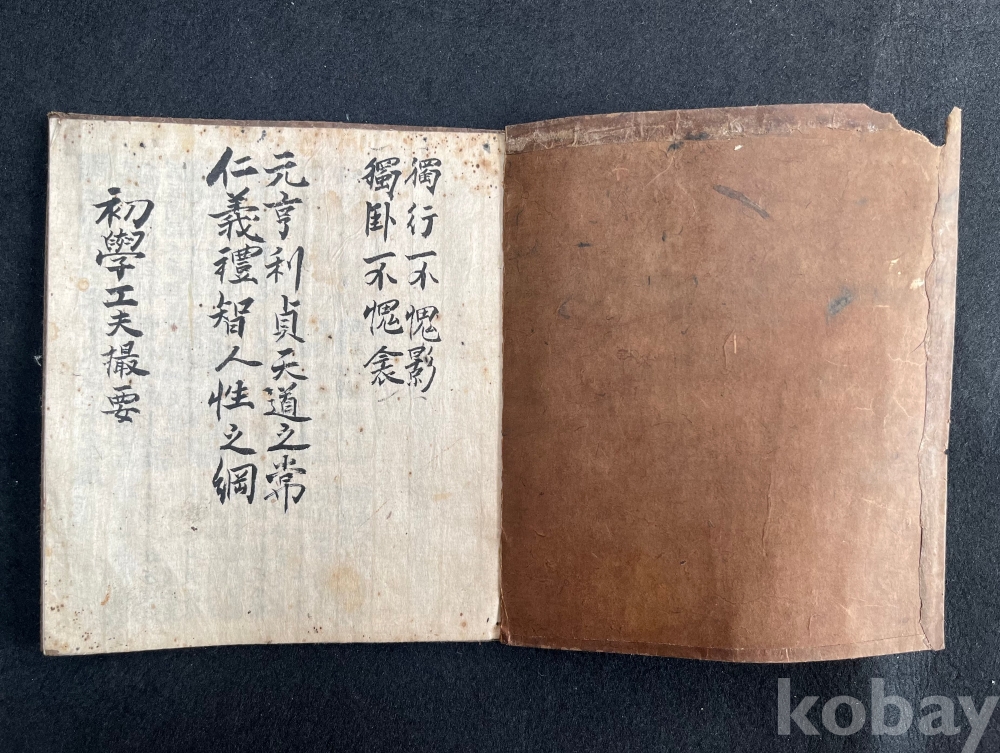 獨行不愧影
獨臥不愧衾
元亨利貞天道之常
仁義禮智人性之綱
初學工夫撮要
kobay